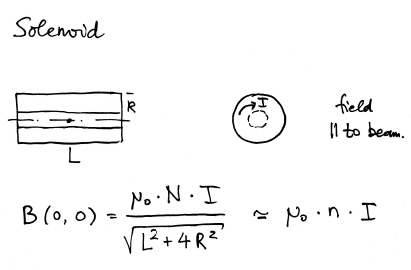 Solenoid
R
I
field
|| to beam.
L
B(0,0) = μ₀·N·I / √(L²+4R²) ≃ μ₀·n·I